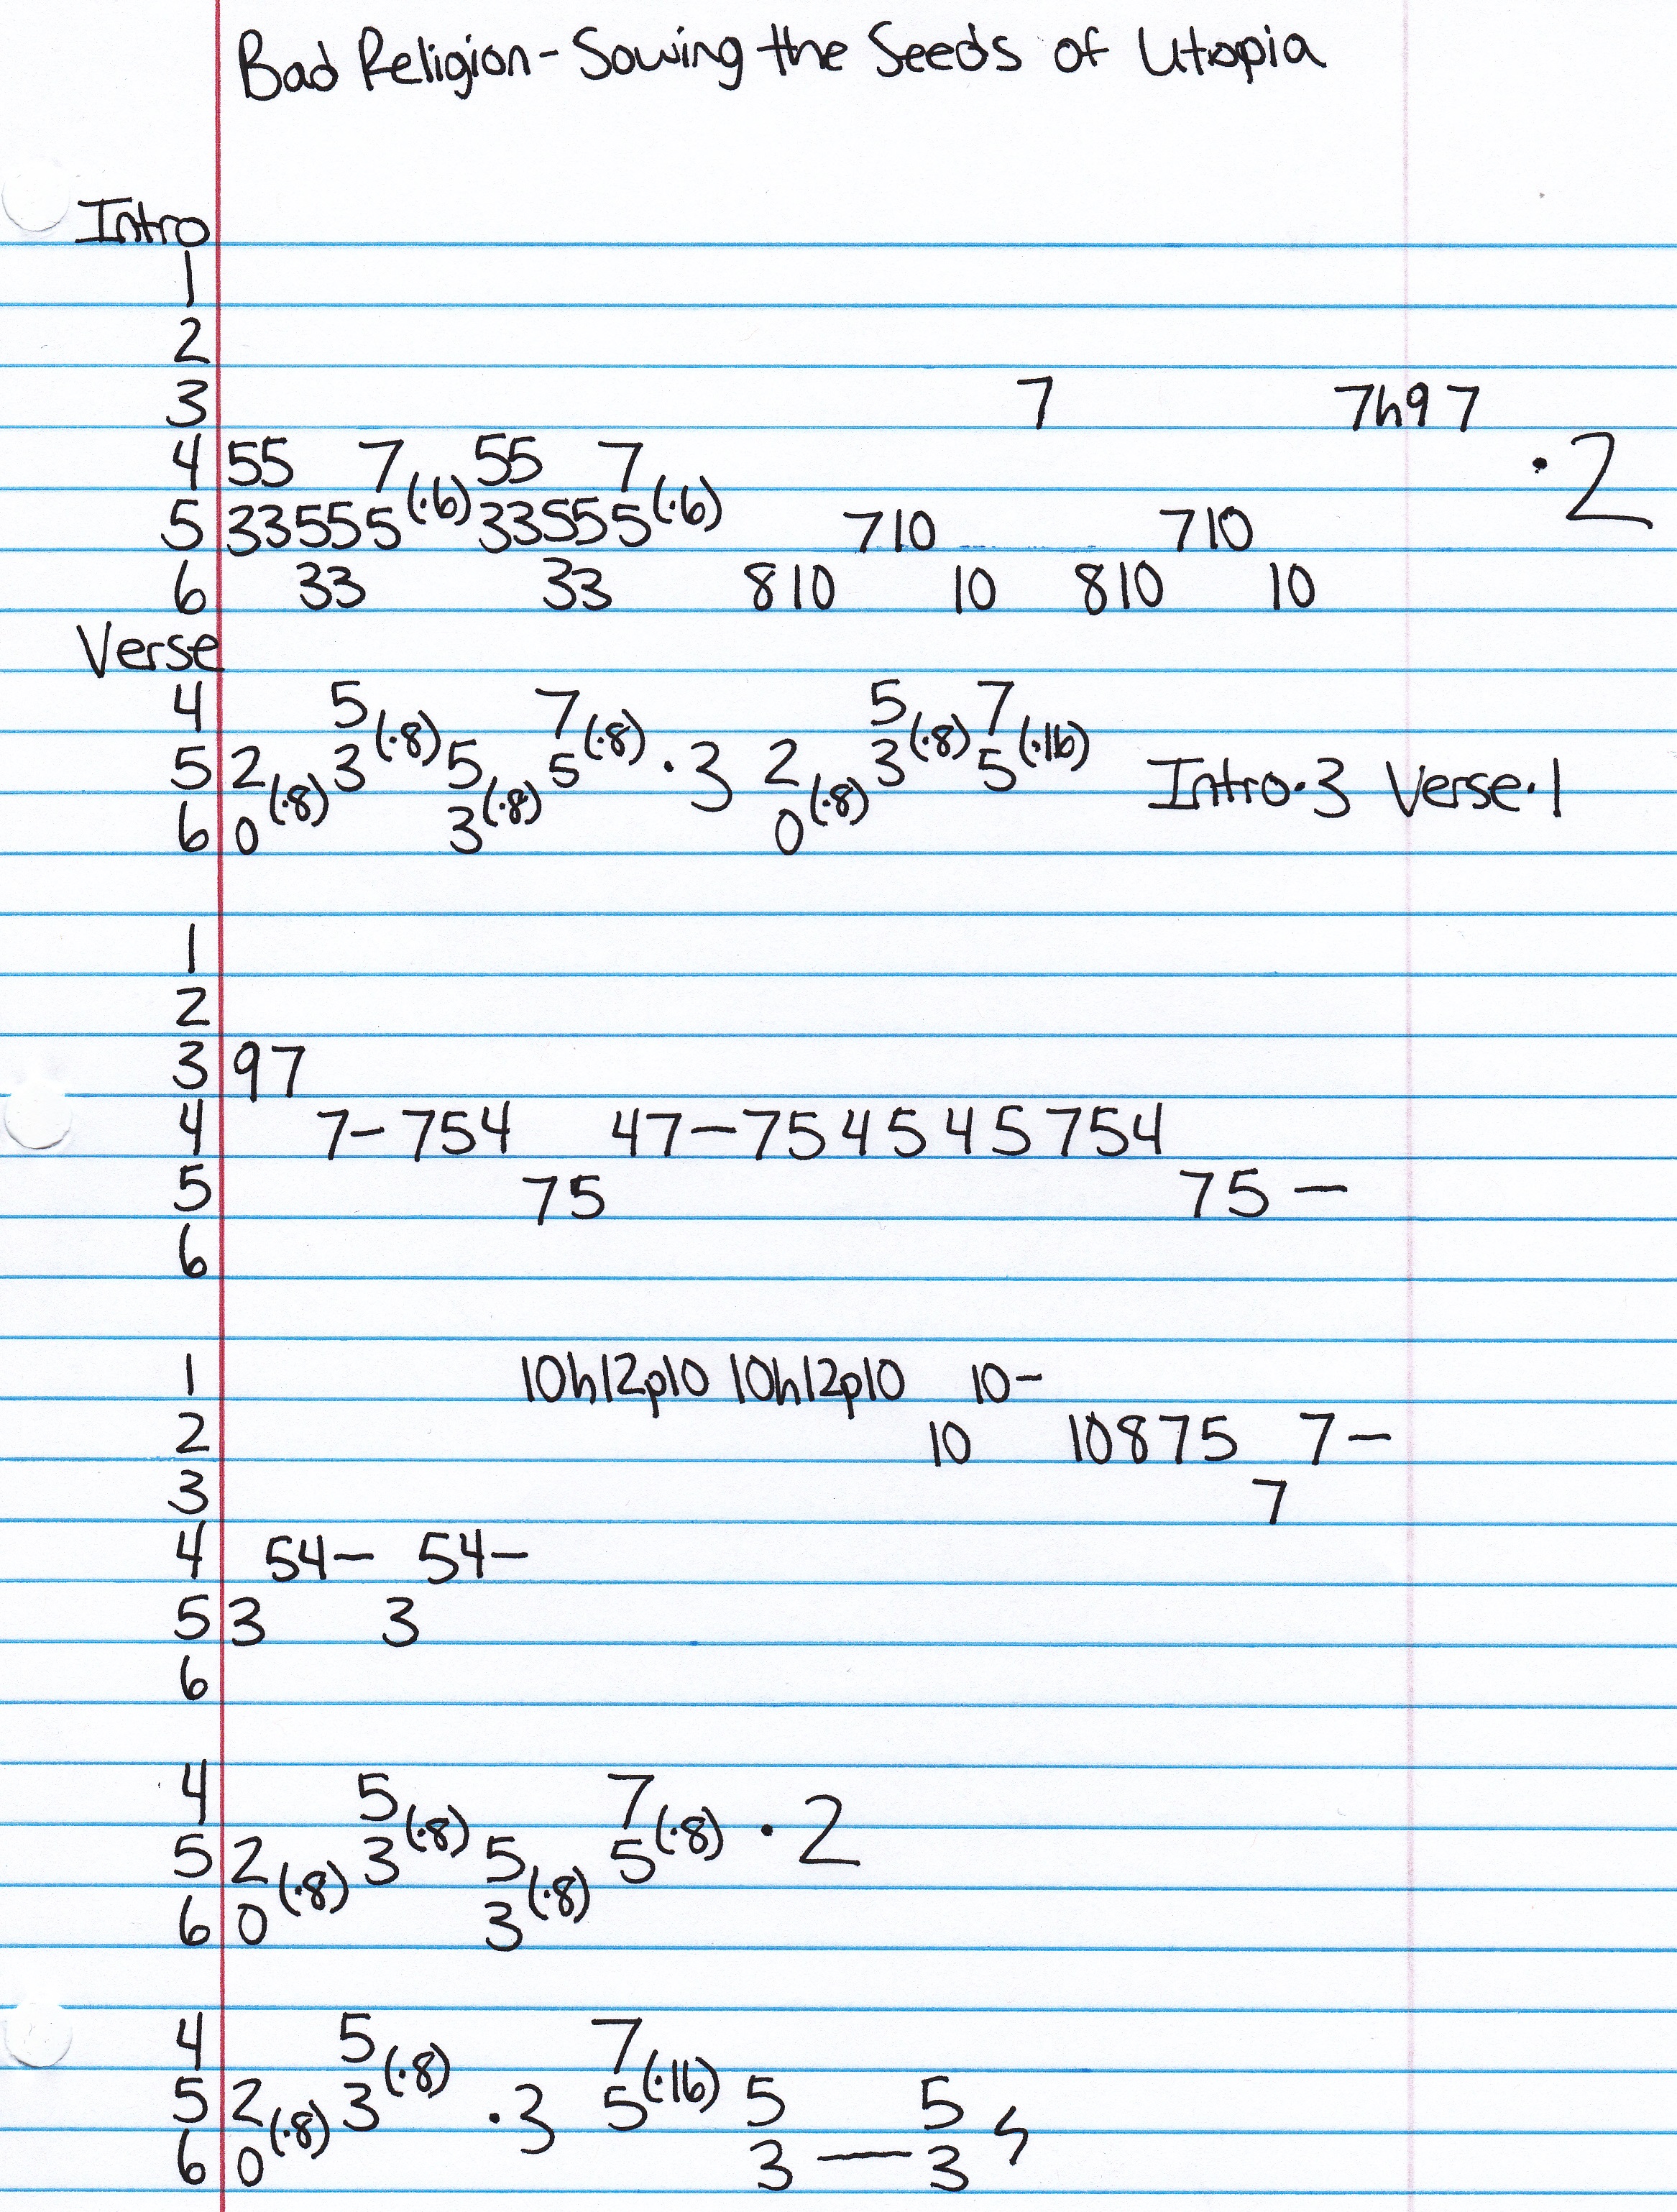 Bad Religion - Sowing the Seeds of Utopia
Intro
1
2
3 7 7h97
4 55 7 55 7 ·2
5 33555(·6) 33555(·6) 710 710
6 33 33 810 10 810 10
Verse
4 5 7 5 7
5 2 3(·8) 5 5(·8) ·3 2 3(·8) 5(·16) Intro·3 Verse·1
6 0(·8) 3(·8) 0(·8)
1
2
3 97
4 7-754 47-754545754
5 75 75-
6
1 10h12p10 10h12p10 10-
2 10 10875 7-
3 7
4 54- 54-
5 3 3
6
4 5 7
5 2 3(·8) 5 5(·8) ·2
6 0(·8) 3(·8)
4 5 7
5 2 3(·8) ·3 5(·16) 5 5
6 0(·8) 3 — 3